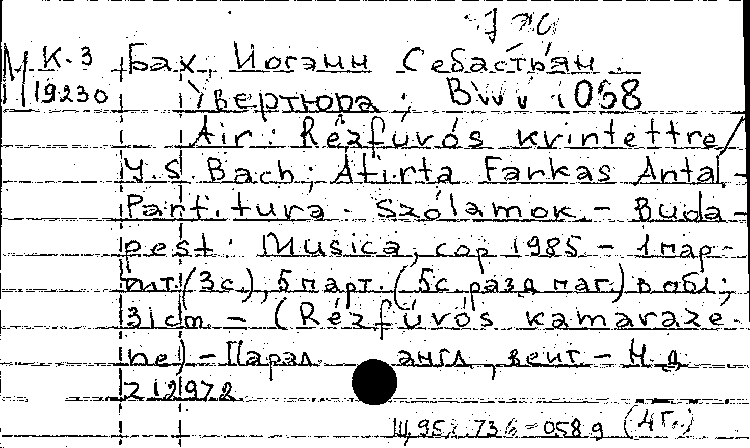 М К.3 Бах, Иоганн Себастьян.
19230 Увертюра; BWV 1058
Air: Rézfúvós kvintettre/
Y.S. Bach; Átirta Farkas Antal.-
Partitura. Szólamok.- Buda-
pest: Musica, cop 1985 - 1 пар-
тит.(3с.), 5 парт.(5с. разд паг.) в обл;
31cm. - (Rézfúvós kamaraze-
ne) - Парал. англ, венг. - Н.д.
Z 12972
(4г.)